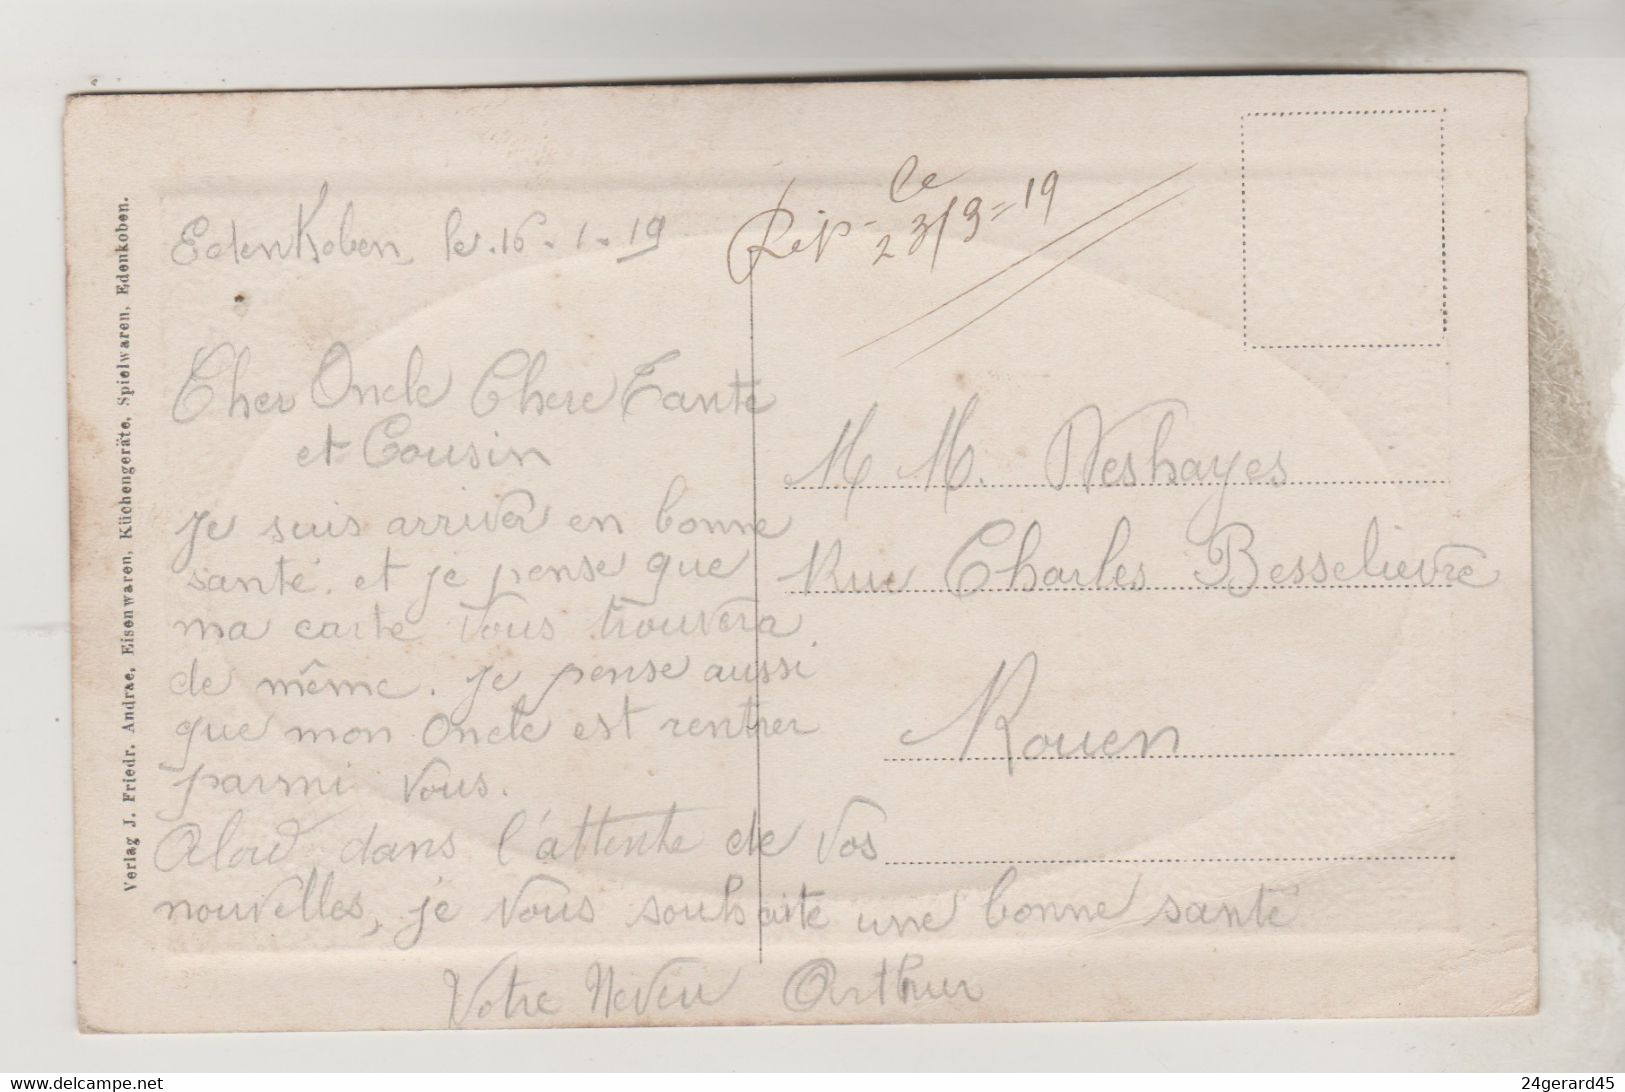 Edenkoben, le. 16-1-19
Rép- Ce
23/3=19
Cher Oncle Chere Tante
et Cousin
je suis arriver en bonne
santé. et je pense que
ma carte vous trouvera
de même. je pense aussi
que mon Oncle est rentrer
parmi vous.
dans l'attente de vos
nouvelles, je vous souhaite une bonne santé
Votre Neveu Arthur
M M. Deshayes
Rue Charles Besselievre
Rouen
Verlag J. Friedr. Andrae, Eisenwaren, Küchengeräte, Spielwaren, Edenkoben.
www.delcampe.net
24gerard45